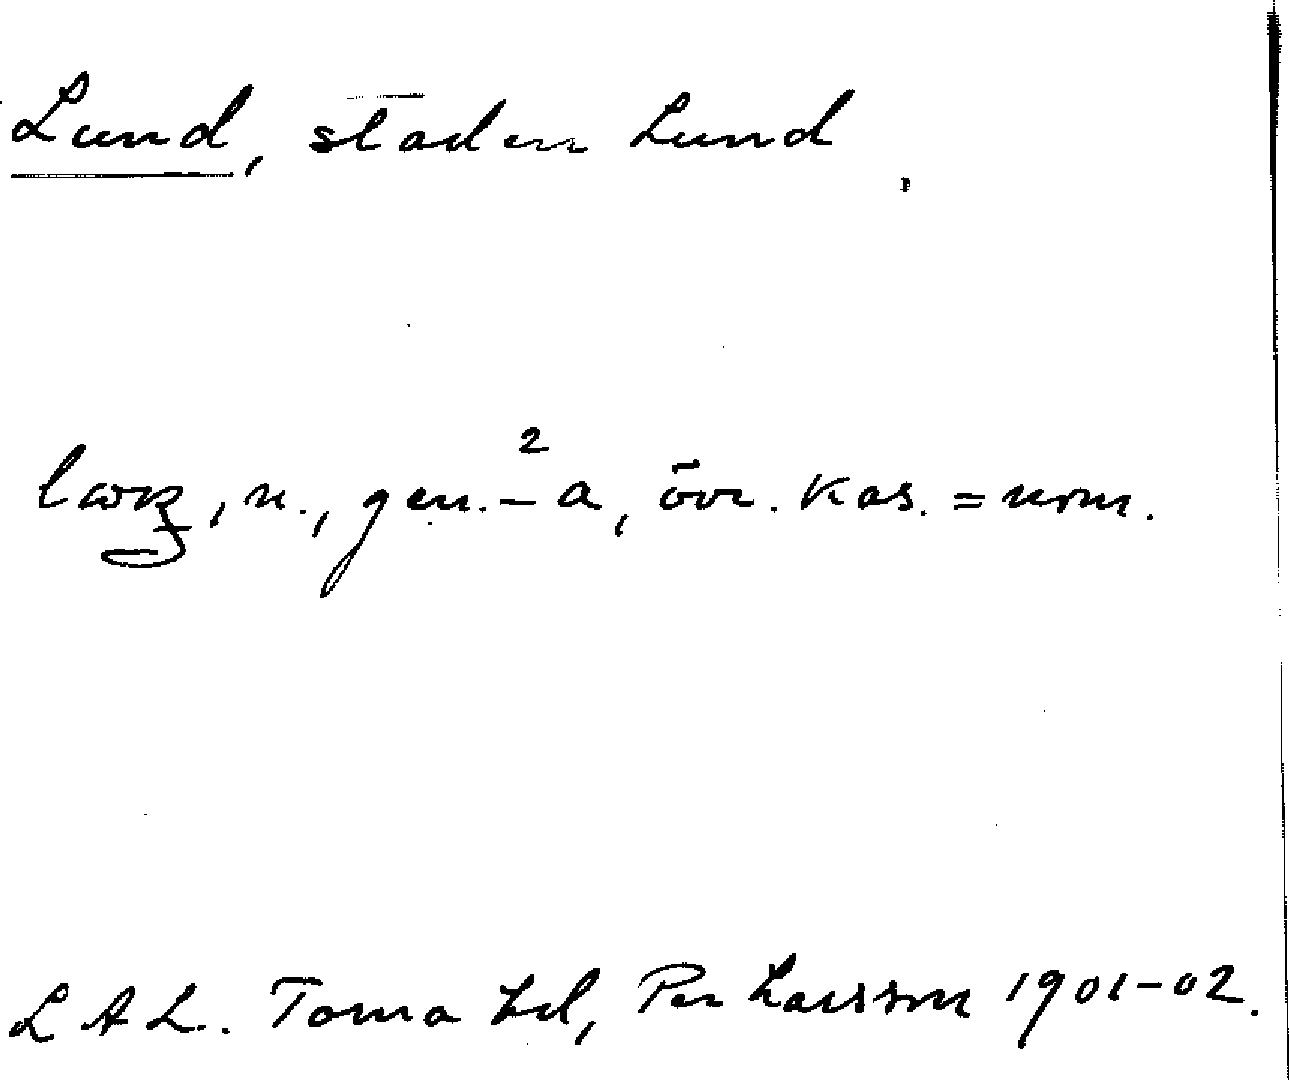 Lund, staden Lund
n., gen. -²a, övr. kas. = nom.
L A L. Torna hd, Per Larsson 1901-02.